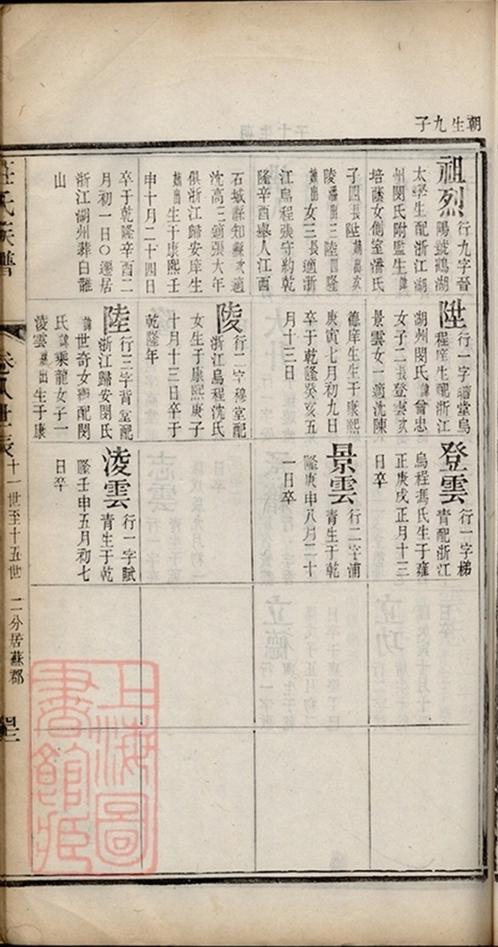 朝生九子
祖烈 行九字晉
陽號鶴湖
太學生配浙江湖
州閔氏附監生
培蔭女側室潘氏
子四長陞
陵潘出三陸四陵
女三長適浙
江烏程張守約乾
隆辛酉舉人江西
石城縣知縣次適
沈高三適張大年
俱浙江歸安庠生
生于康熙壬
申十月二十四日
卒于乾隆辛酉二
月初一日〇遷居
浙江湖州葬白龍
山
陞 行一字
堂烏
程庠生配浙江
湖州閔氏曾忠
女子二長登雲次
景雲女一適沈陳
德庠生生于康熙
庚寅七月初九日
卒于乾隆癸亥五
月十三日
陵 行二字穆堂配
浙江烏程沈氏
女生于康熙庚子
十月十三日卒于
乾隆年
陸 行三字背堂配
浙江歸安閔氏
世奇女配閔
氏乘龍女子一
淩雲出生于康
登雲 行一字梯
青配浙江
烏程馮氏生于雍
正庚戌正月十三
日卒
景雲 行二字浦
青生于乾
隆庚申八月二十
一日卒
淩雲 行一字賦
青生于乾
隆壬申五月初七
日卒
莊氏族譜
卷八世表
十一世至十五世
二分居蘇郡
上海圖
書館藏